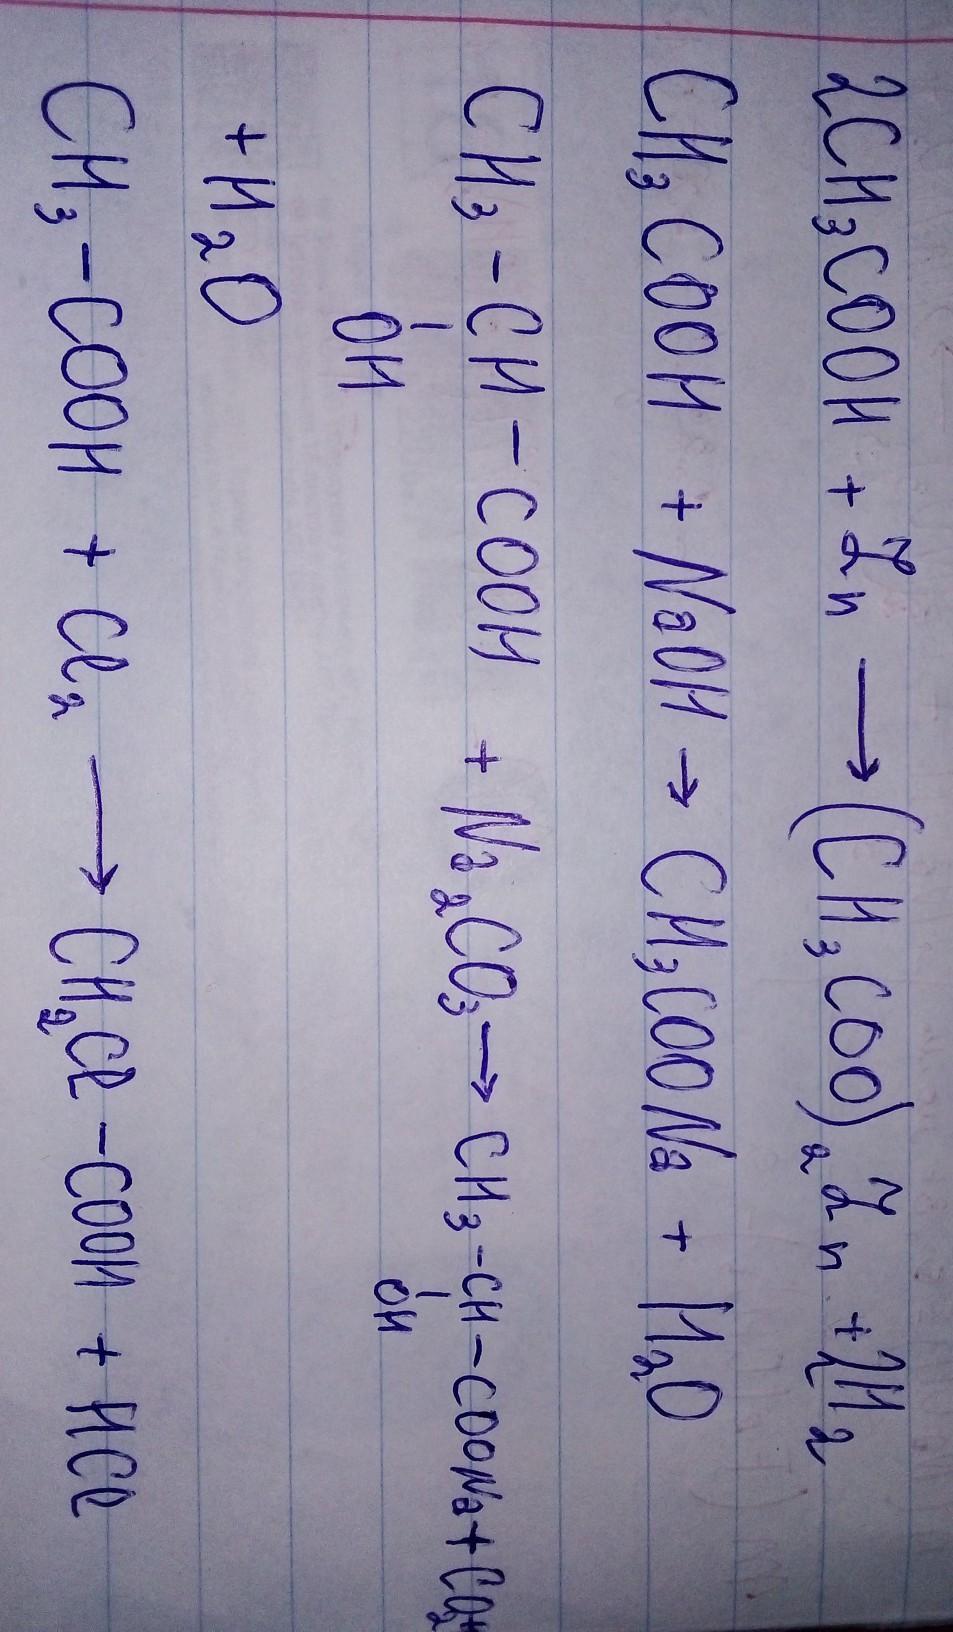 2CH₃COOH + Zn ⟶ (CH₃COO)₂Zn + 2H₂
CH₃COOH + NaOH → CH₃COONa + H₂O
CH₃ – CH – COOH + Na₂CO₃ → CH₃ – CH – COONa + CO₂ +
OH OH
+ H₂O
CH₃ – COOH + Cl₂ ⟶ CH₂Cl – COOH + HCl